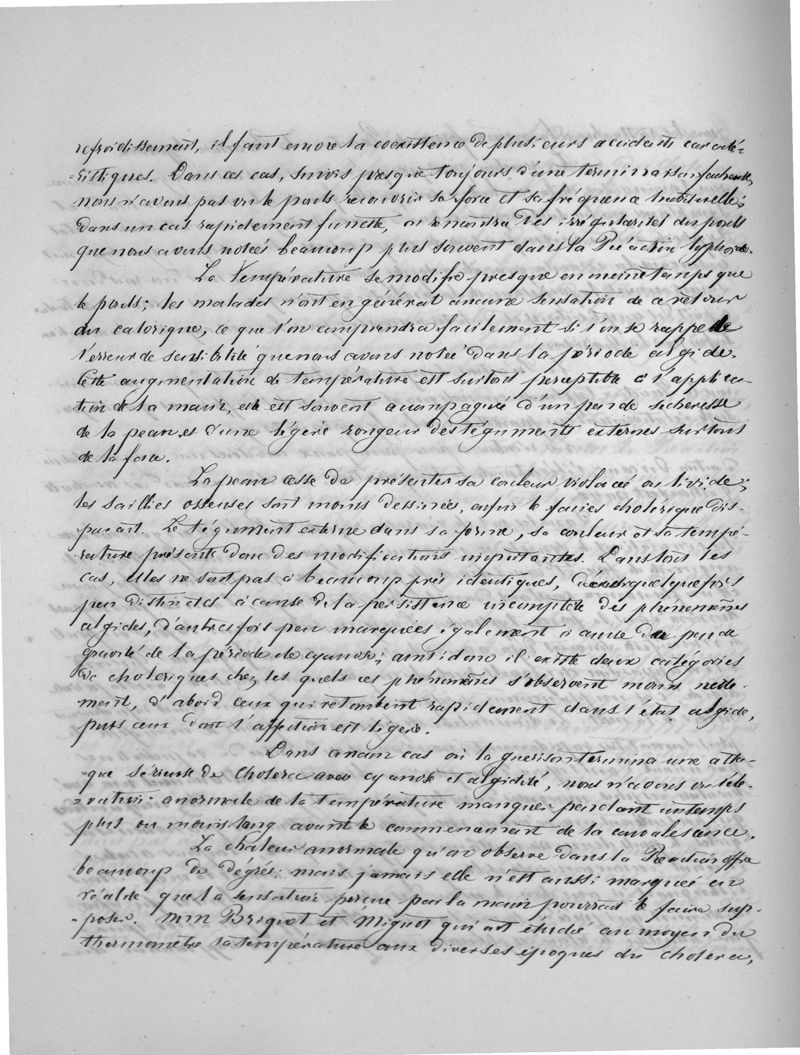 refroidissement, il faut encore la coexistence de plusieurs accidents caracté-
=ristiques. Dans ces cas, suivis presque toujours d'une terminaison fâcheuse,
nous n'avons pas vu le pouls recouvrir sa force et sa fréquence habituelle;
dans un cas rapidement funeste, on rencontra des irrégularités du pouls
que nous avons notées beaucoup plus souvent dans la Réaction typhoïde.
La Température se modifie presque en même temps que
le pouls; les malades n'ont en général aucune sensation de ce retour
du calorique, ce que l'on comprendra facilement si l'on se rappelle
l'erreur de sensibilité que nous avons notée dans la période algide.
Cette augmentation de température est surtout perceptible à l'applica-
tion de la main, elle est souvent accompagnée d'un peu de sécheresse
de la peau et d'une légère rougeur des téguments externes surtout
de la face.
La peau cesse de présenter sa couleur violacée ou livide;
les saillies osseuses sont moins dessinées, enfin le facies cholérique dis-
parait. Le tégument externe dans sa forme, sa couleur et sa tempé-
rature présente donc des modifications importantes. Dans tous les
cas, elles ne sont pas à beaucoup près identiques, quelquefois
peu distinctes à cause de la persistence incomplète des phénomènes
algides, d'autres fois peu marquées également à cause du peu de
gravité de la période de cyanose; ainsi donc il existe deux catégories
de choleriques chez les quels ces phénomènes s'observent moins nette-
ment, d'abord ceux qui retombent rapidement dans l'état algide,
puis ceux dont l'affection est légère.
Dans aucun cas où la guérison termina une atta-
=que sérieuse de choléra avec cyanose et algidité, nous n'avons vu l'élé-
=vation anormale de la température manquer pendant un temps
plus ou moins long avant le commencement de la convalescence.
La chaleur anormale qu'on observe dans la Réaction offre
beaucoup de dégrés; mais jamais elle n'est aussi marquée en
réalité que la sensation perçue par la main pourrait le faire sup-
-poser. MM Briquet et Mignot qui ont étudié au moyen du
thermomètre la température aux diverses époques du cholera,